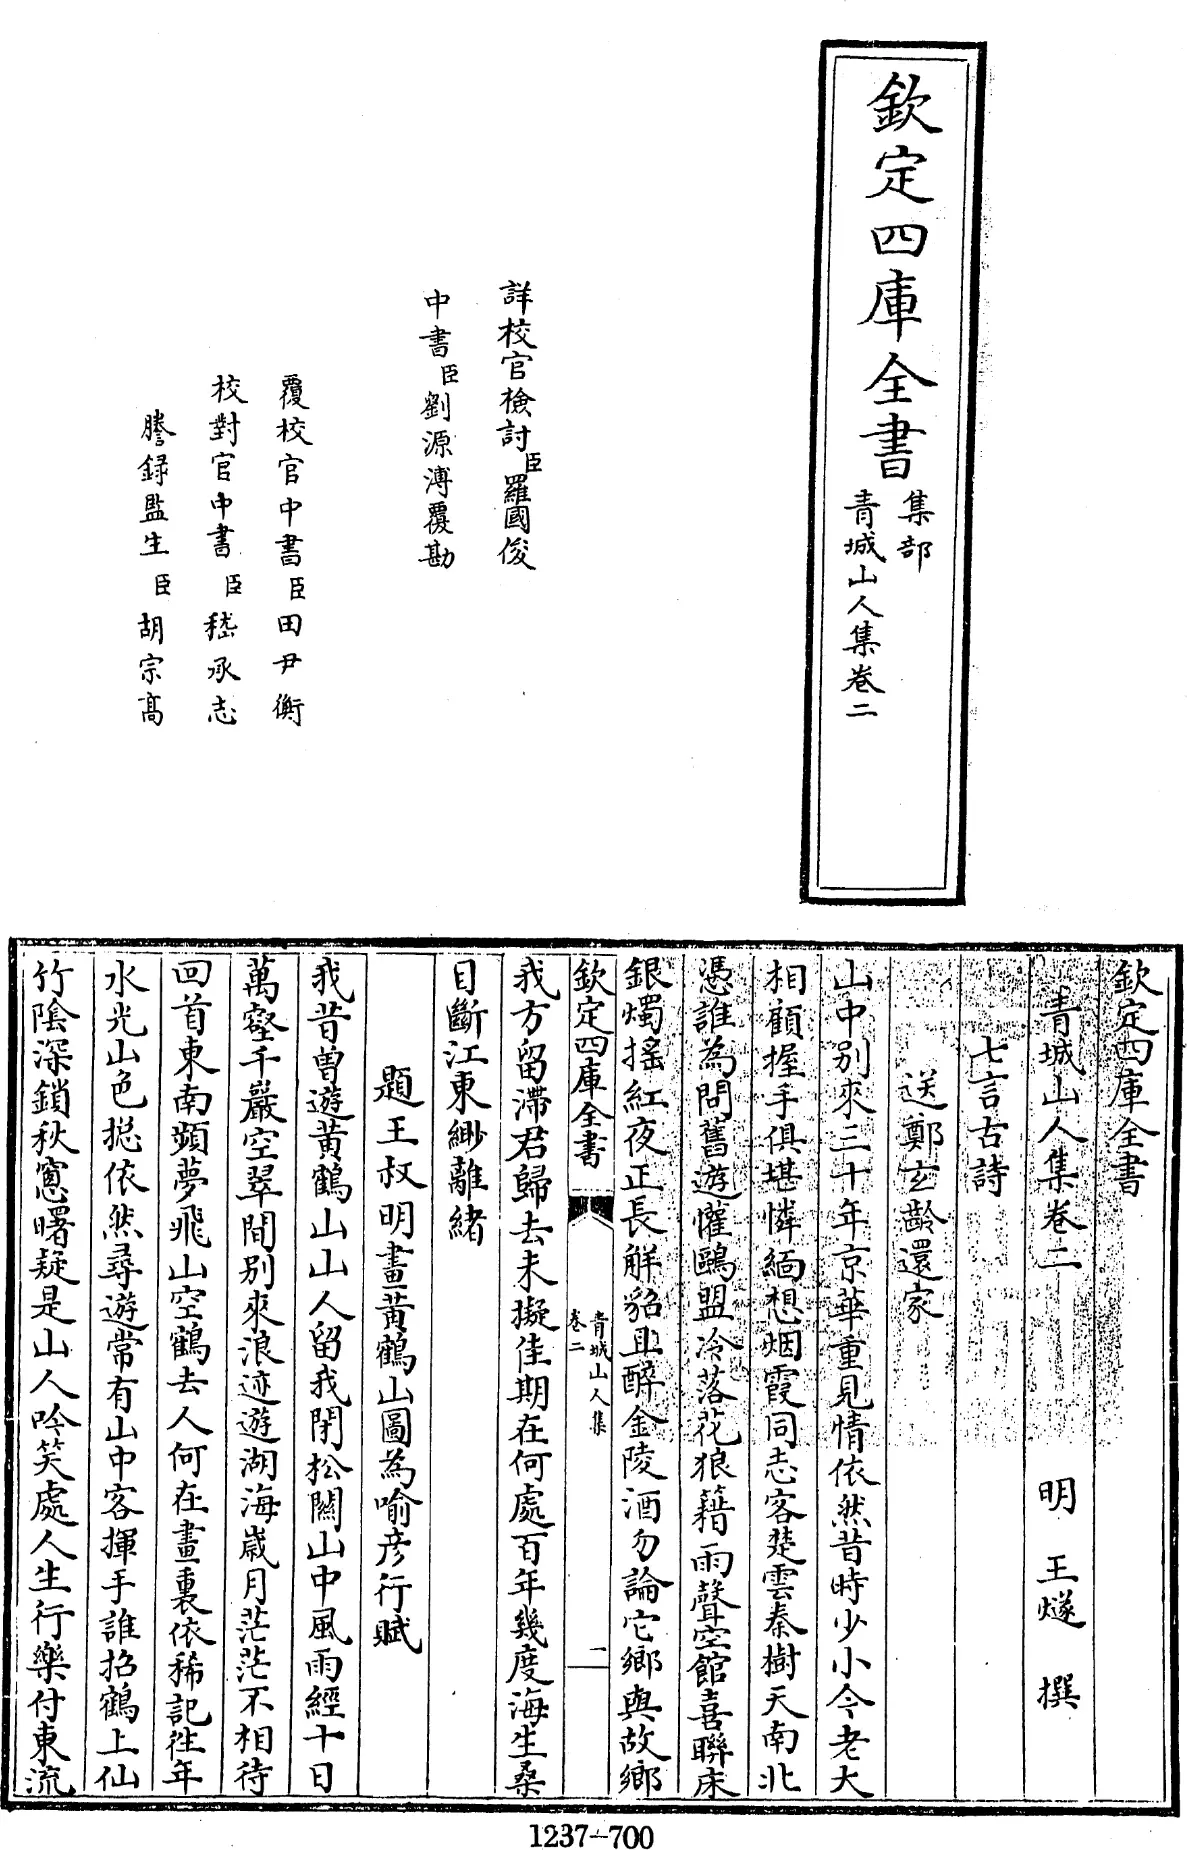 欽定四庫全書
集部
青城山人集卷二
詳校官檢討臣羅國俊
中書臣劉源溥覆勘
覆校官中書臣田尹衡
校對官中書臣嵇承志
謄錄監生臣胡宗髙
欽定四庫全書
青城山人集卷二
明 王燧 撰
七言古詩
送鄭玄齡還家
山中别來三十年京華重見情依然昔時少小今老大
相顧握手俱堪憐緬想烟霞同志客楚雲秦樹天南北
憑誰為問舊遊懽鷗盟冷落花狼藉雨聲空館喜聯床
銀燭揺紅夜正長解貂且醉金陵酒勿論它鄉與故鄉
欽定四庫全書
青城山人集
卷二
一
我方留滯君歸去未擬佳期在何處百年幾度海生桑
目斷江東緲離緒
題王叔明畫黄鶴山圖為喻彦行賦
我昔曽遊黄鶴山山人留我閉松關山中風雨經十日
萬壑千巖空翠間别來浪迹遊湖海歲月茫茫不相待
回首東南頻夢飛山空鶴去人何在畫裏依稀記徃年
水光山色揔依然尋遊常有山中客揮手誰招鶴上仙
竹陰深鎖秋窓曙疑是山人吟笑處人生行樂付東流
1237-700